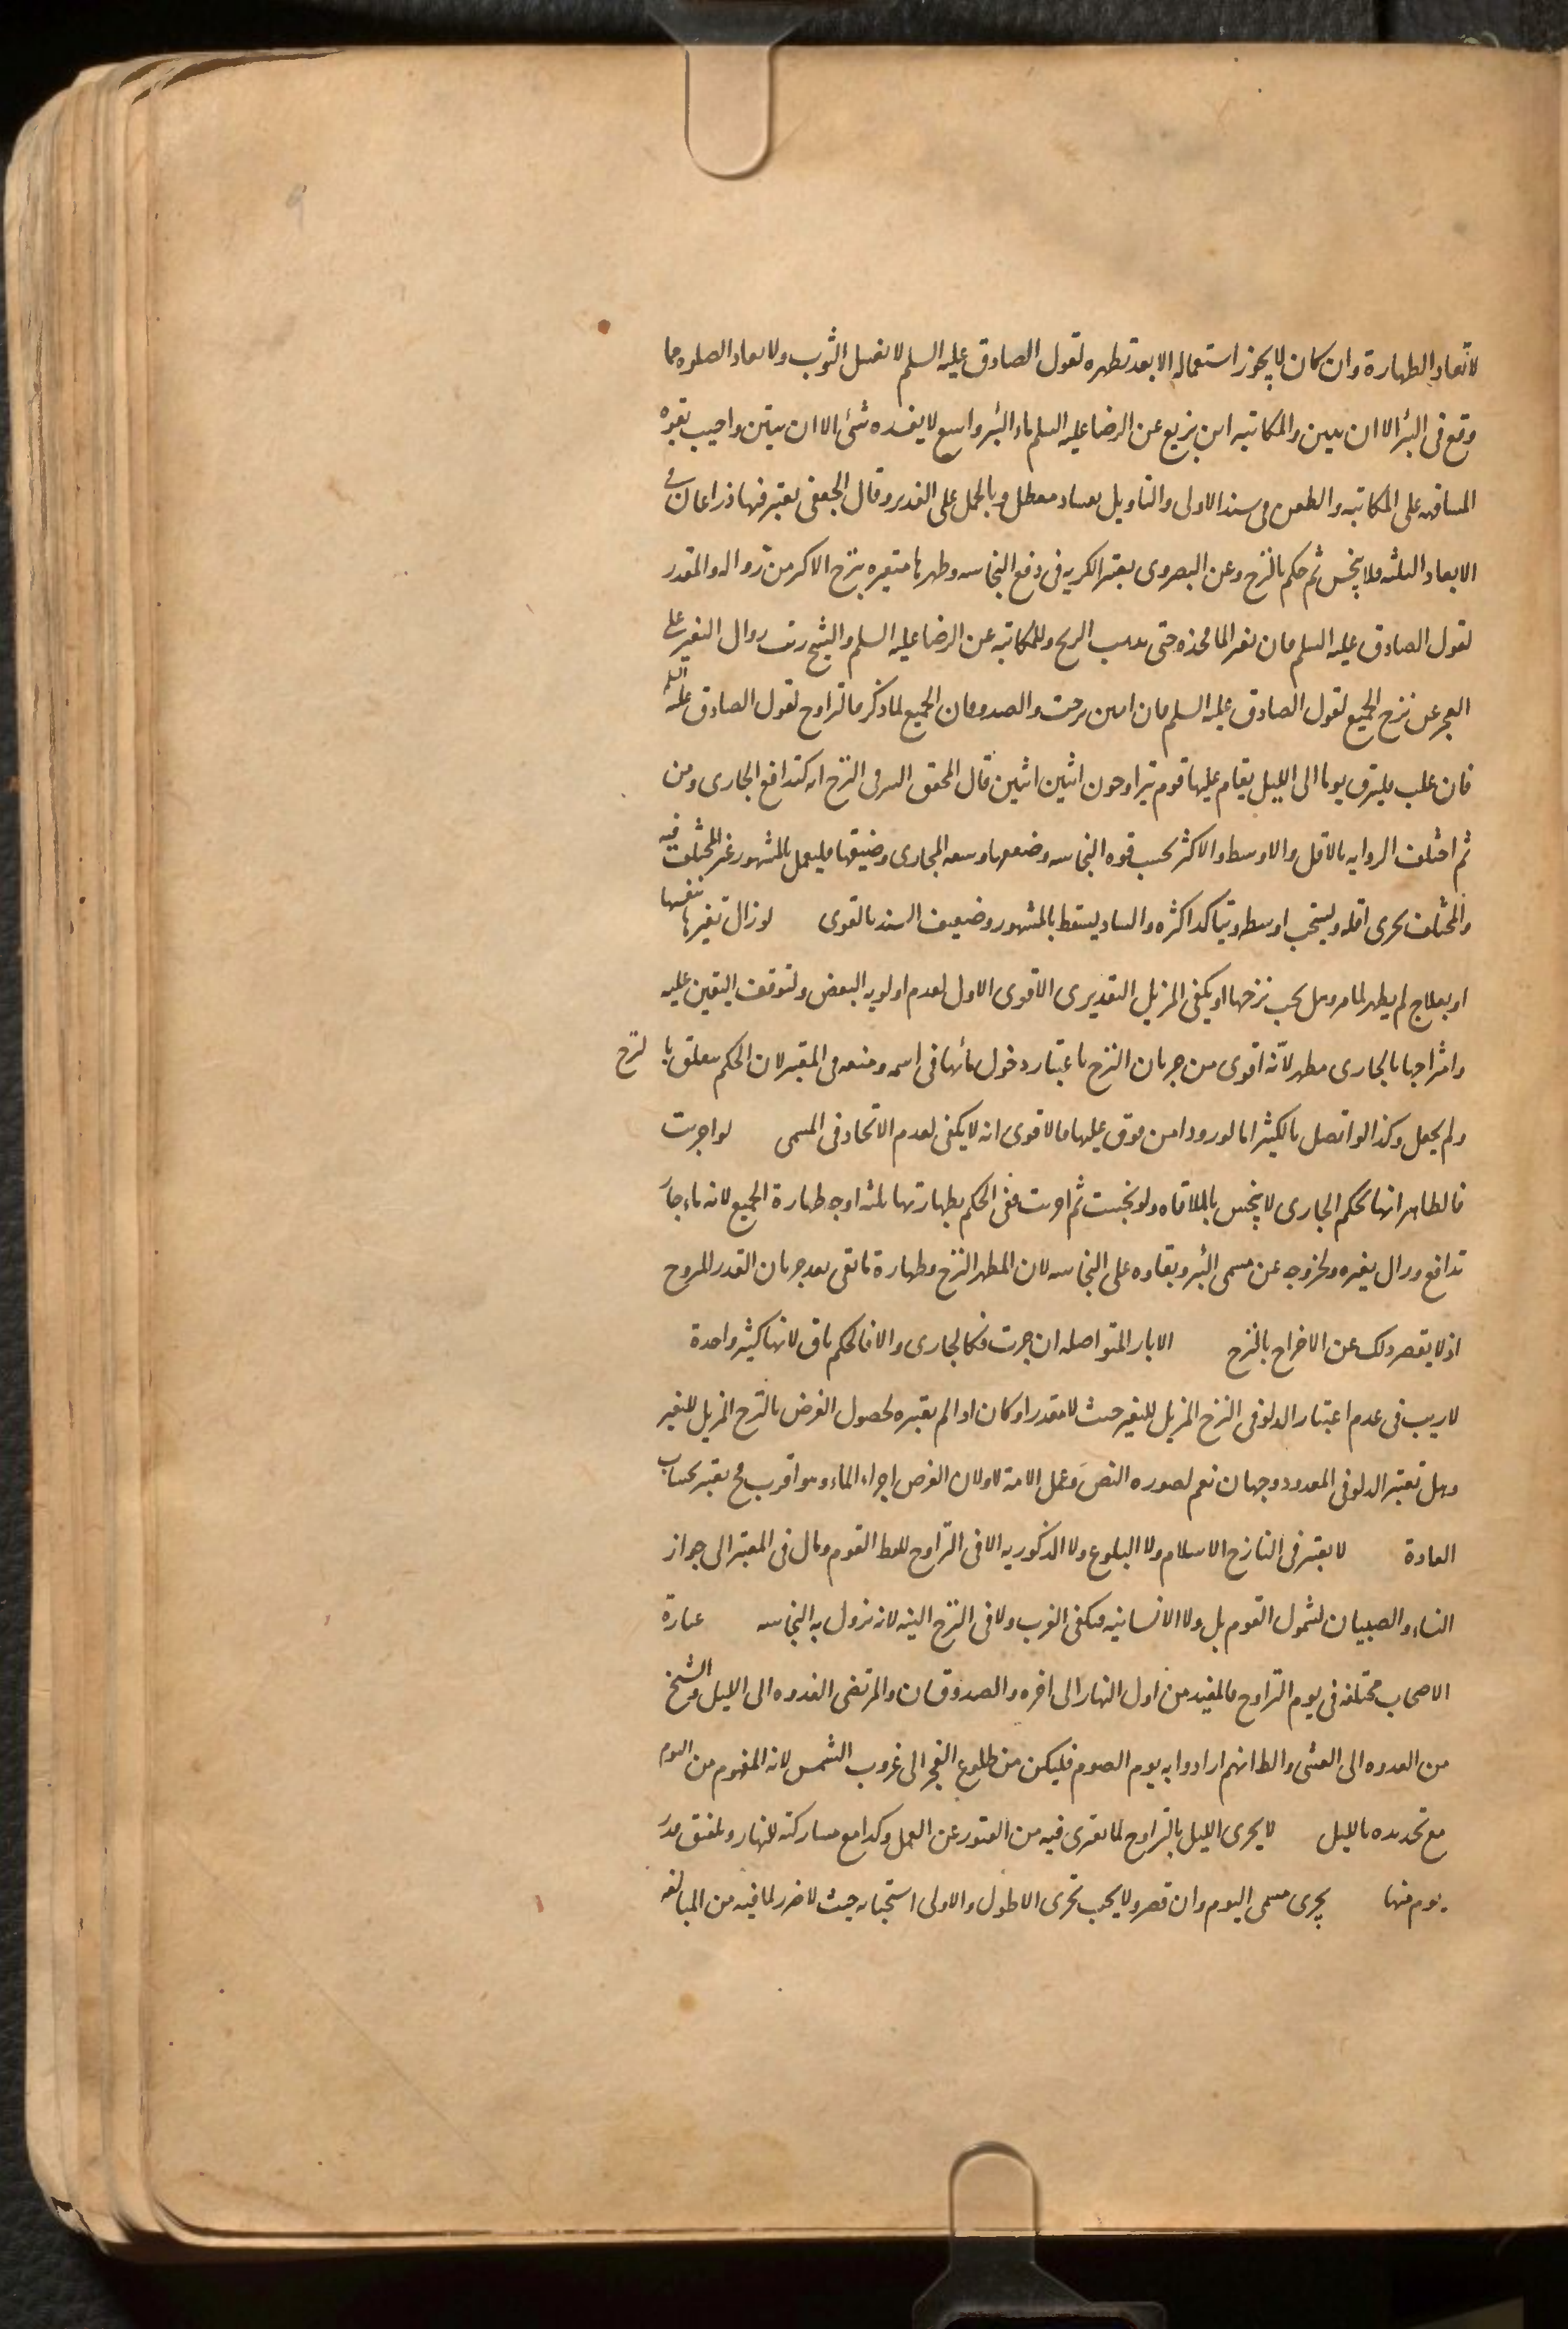 لا تعاد الطهارة وان كان لا يجوز استعماله الا بعد تطهره لقول الصادق عليه السلم لا يغسل الثوب ولا يعاد الصلوه مما
وقع فى البئر الا ان ينتن والمكاتبه ابن بزيع عن الرضا عليه السلم ماء البئر واسع لا يفسده شئ الا ان ينتن واجيب بقوه
المشافهه على المكاتبه والطعن فى سند الاولى والتاويل بفساد معطل وبالحمل على الغدير وقال الجعفى يعتبر فيها ذراعان فى
الابعاد الثلثه فلا ينجس ثم حكم بالنزح وعن البصروى يعتبر الكريه فى دفع النجاسه وطهرها متغيره بنزح الاكثر من زواله والمقدر
لقول الصادق عليه السلم فان تغير الما فخذه حتى يذهب الريح وللمكاتبه عن الرضا عليه السلم والشيخ رتب زوال التغير على
العجز عن نزح الجميع لقول الصادق عليه السلم فان انتن نزحت والصدوقان الجميع لما ذكر فالتراوح لقول الصادق عليه السلم
فان غلب فلينزف يوما الى الليل يقام عليها قوم يتراوحون اثنين اثنين قال المحقق السر فى النزح انه كتدافع الجارى ومن
ثم اختلف الروايه بالاقل والاوسط والاكثر بحسب قوه النجاسه وضعفها وسعه المجارى وضيقها فليعمل بالمشهور غير المختلف فيه
والمختلف يجزى اقله ويستحب اوسطه ويتاكد اكثره والشاذ يسقط بالمشهور وضعيف السند بالقوى لو زال تغيرها بنفسها
او بعلاج لم يطهر لما مر وهل يجب نزحها او يكفى المزيل التقديرى الاقوى الاول لعدم اولويه البعض ولتوقف اليقين عليه
وامتزاجها بالجارى مطهر لانه اقوى من جريان النزح باعتبار دخول مائها فى اسمه ومنعه فى المعتبر لان الحكم متعلق بالنزح
ولم يحصل وكذا لو اتصل بالكثير اما لو وردا من فوق عليها فالاقوى انه لا يكفى لعدم الاتحاد فى المسمى لو اجريت
فالظاهر انها بحكم الجارى لا ينجس بالملاقاه ولو نجست ثم اجريت ففى الحكم بطهارتها ثلثه اوجه طهارة الجميع لانه ماء جار
تدافع وزال تغيره ولخروجه عن مسمى البئر وبقاوه على النجاسه لان المطهر النزح وطهارة ما بقى بعد جريان القدر المنزوح
اذ لا يقصر ذلك عن الاخراج بالنزح الابار المتواصله ان جرت فكالجارى والا فالحكم باق لانها كبئر واحدة
لا ريب فى عدم اعتبار الدلو فى النزح المزيل للتغير حيث لا مقدر او كان اذا لم يعتبره لحصول الغرض بالنزح المزيل للتغير
وهل تعتبر الدلو فى المعدود وجهان نعم لصوره النص وعمل الامة ولا ولان الغرض اجراء الماء وهو اقرب فح يعتبر بحساب
العادة لا يعتبر فى النازح الاسلام ولا البلوغ ولا الذكوريه الا فى التراوح للفظ القوم ومال فى المعتبر الى جواز
النساء والصبيان لشمول القوم بل ولا الانسانيه فيكفى الغرب ولا فى النزح النيه لانه نزول به النجاسه عبارة
الاصحاب مختلفه فى يوم التراوح فالمفيد من اول النهار الى اخره والصدوقان والمرتضى الغدوه الى الليل والشيخ
من الغدوه الى العشى والظ انهم ارادوا به يوم الصوم فليكن من طلوع الفجر الى غروب الشمس لانه المفهوم من اليوم
مع تحديده بالليل لا يجزى الليل بالتراوح لما يعترى فيه من الفتور عن العمل وكذا مع مشاركته للنهار وتلفق قدر
يوم منها يجزى مسمى اليوم وان قصر ولا يجب تحرى الاطول والاولى استحبابه حيث لا ضرر لما فيه من المبالغه